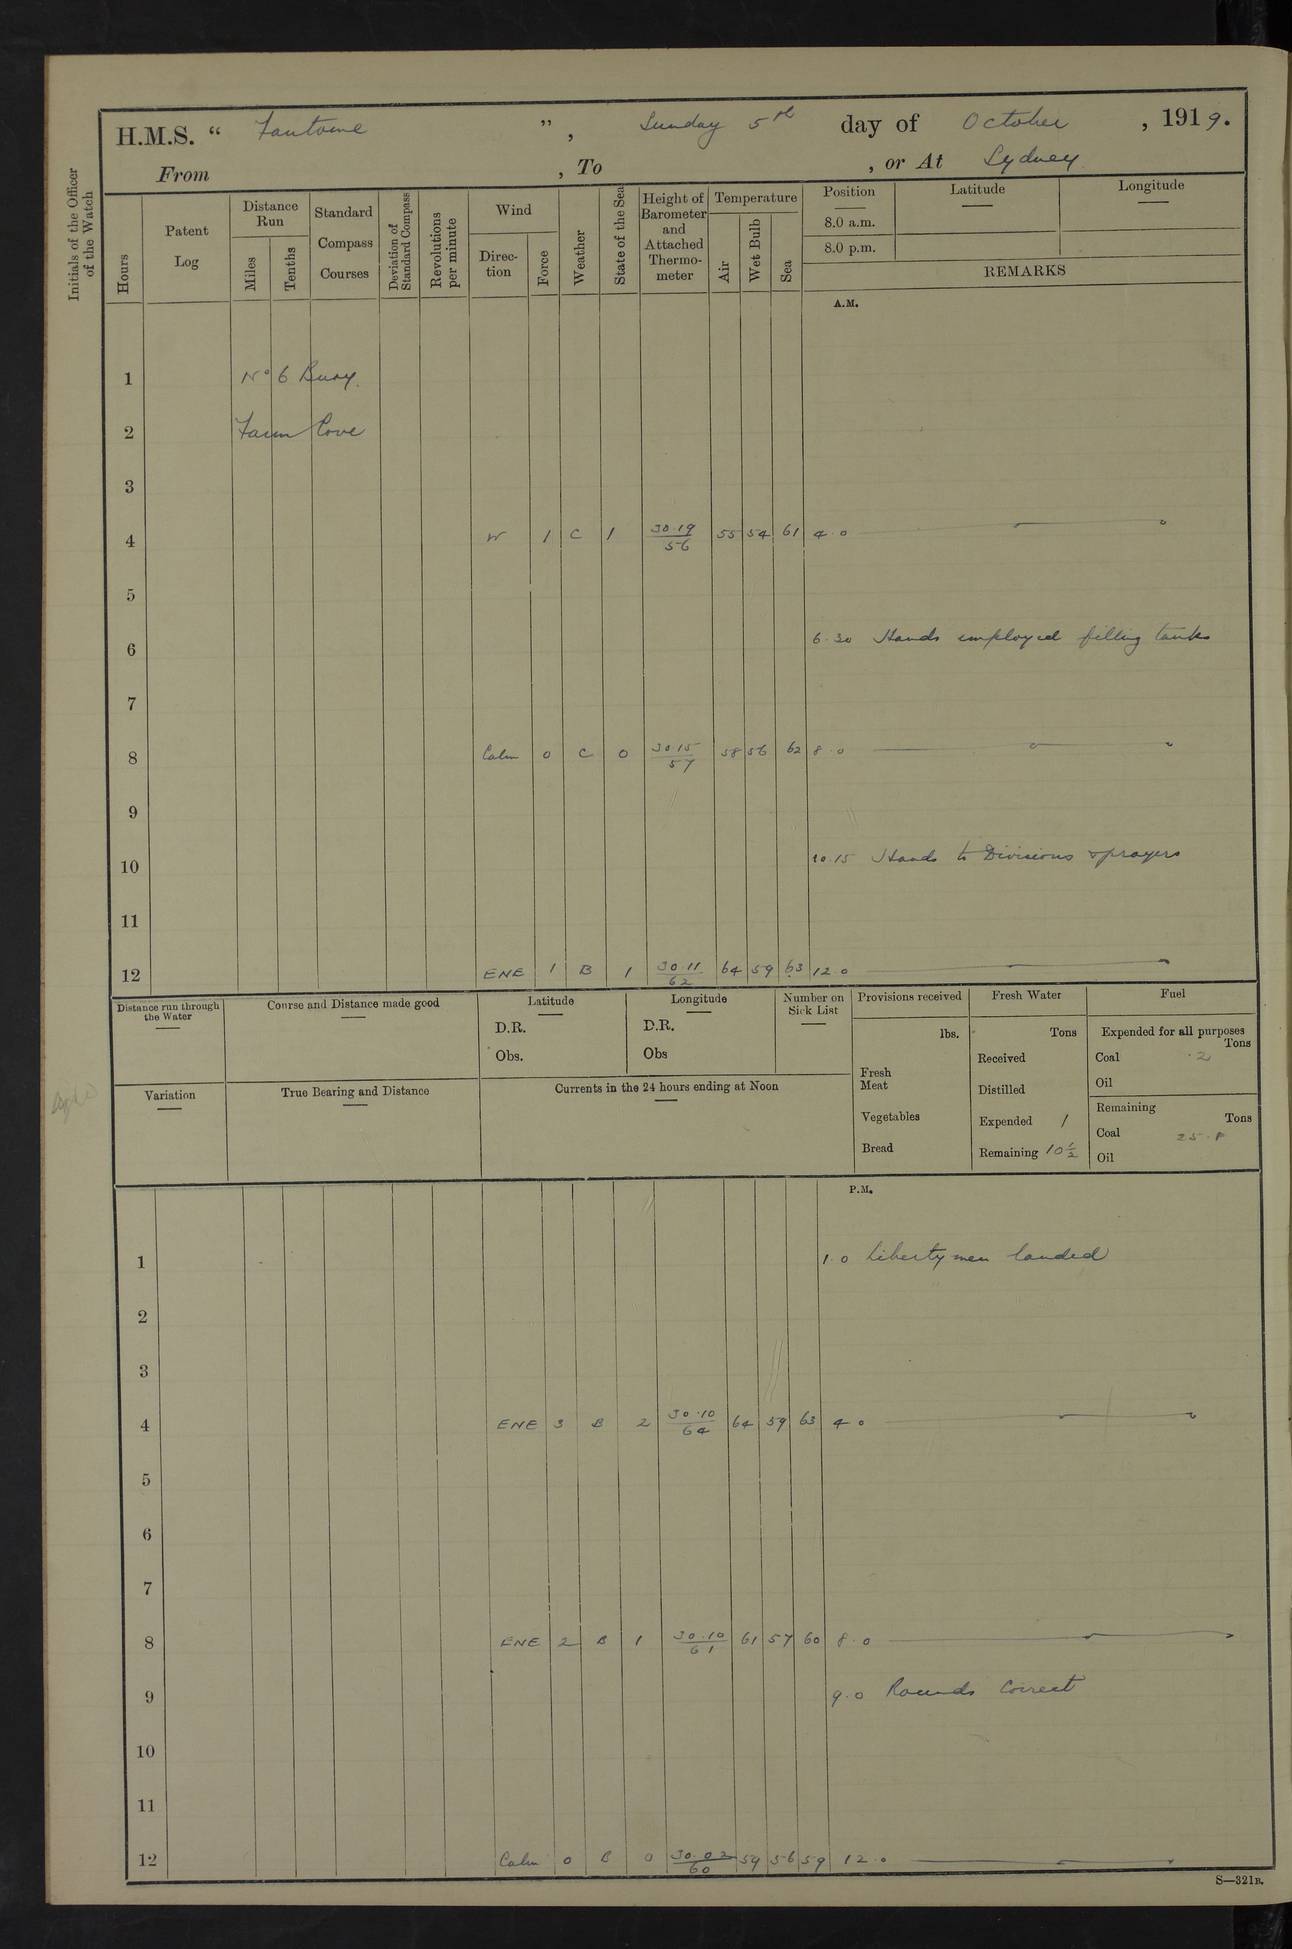 H.M.S. “ Fantome ”, Sunday 5th day of October, 1919.
From , To , or At Sydney
Initials of the Officer of the Watch
Hours
Patent Log
Distance Run
Miles
Tenths
Standard Compass Courses
Deviation of Standard Compass
Revolutions per minute
Wind
Direction
Force
Weather
State of the Sea
Height of Barometer and Attached Thermometer
Temperature
Air
Wet Bulb
Sea
Position
Latitude
Longitude
8.0 a.m.
8.0 p.m.
REMARKS
A.M.
1 No 6 Buoy.
2 Farm Cove
3
4 W 1 C 1 30.19/56 55 54 61 4.0
5
6 6.30 Hands employed filling tanks
7
8 Calm 0 C 0 30.15/57 58 56 62 8.0
9
10 10.15 Hands to Divisions & prayers
11
12 ENE 1 B 1 30.11/62 64 59 63 12.0
Distance run through the Water
Course and Distance made good
Latitude
D.R.
Obs.
Longitude
D.R.
Obs
Number on Sick List
Provisions received
lbs.
Fresh Meat
Vegetables
Bread
Fresh Water
Tons
Received
Distilled
Expended 1
Remaining 10 1/2
Fuel
Expended for all purposes
Tons
Coal .2
Oil
Remaining
Tons
Coal 25.8
Oil
Variation
True Bearing and Distance
Currents in the 24 hours ending at Noon
P.M.
1 1.0 Libertymen landed
2
3
4 ENE 3 B 2 30.10/64 64 59 63 4.0
5
6
7
8 ENE 2 B 1 30.10/61 61 57 60 8.0
9 9.0 Rounds Correct
10
11
12 Calm 0 B 0 30.02/60 59 56 59 12.0
S—321B.